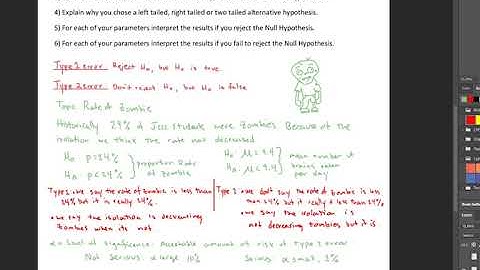 4) Explain why you chose a left tailed, right tailed or two tailed alternative hypothesis.
5) For each of your parameters interpret the results if you reject the Null Hypothesis.
6) For each of your parameters interpret the results if you fail to reject the Null Hypothesis.
Type 1 error: Reject Ho, but Ho is true
Type 2 error: Don't reject Ho, but Ho is false
Topic Rate of Zombie
Historically 24% of Jccc students were zombies Because of the
isolation we think the rate has decreased
Ho p=24%
Ha p<24%
proportion Rate
of Zombie
Ho μ=9.4
Ha μ<9.4
mean number of
brains eaten
per day
Type 1 • we say the rate of zombie is less than
24% but it is really 24%.
• we say the isolation is decreasing
zombies when its not
Type 2 • we don't say the rate of zombie is less
than 24% but it really is less than 24%
• we say the isolation is
not decreasing zombies but it is
α = Level of significance: Acceptable amount of risk of type 1 error
Not Serious α large 10%
Serious α small, 1%